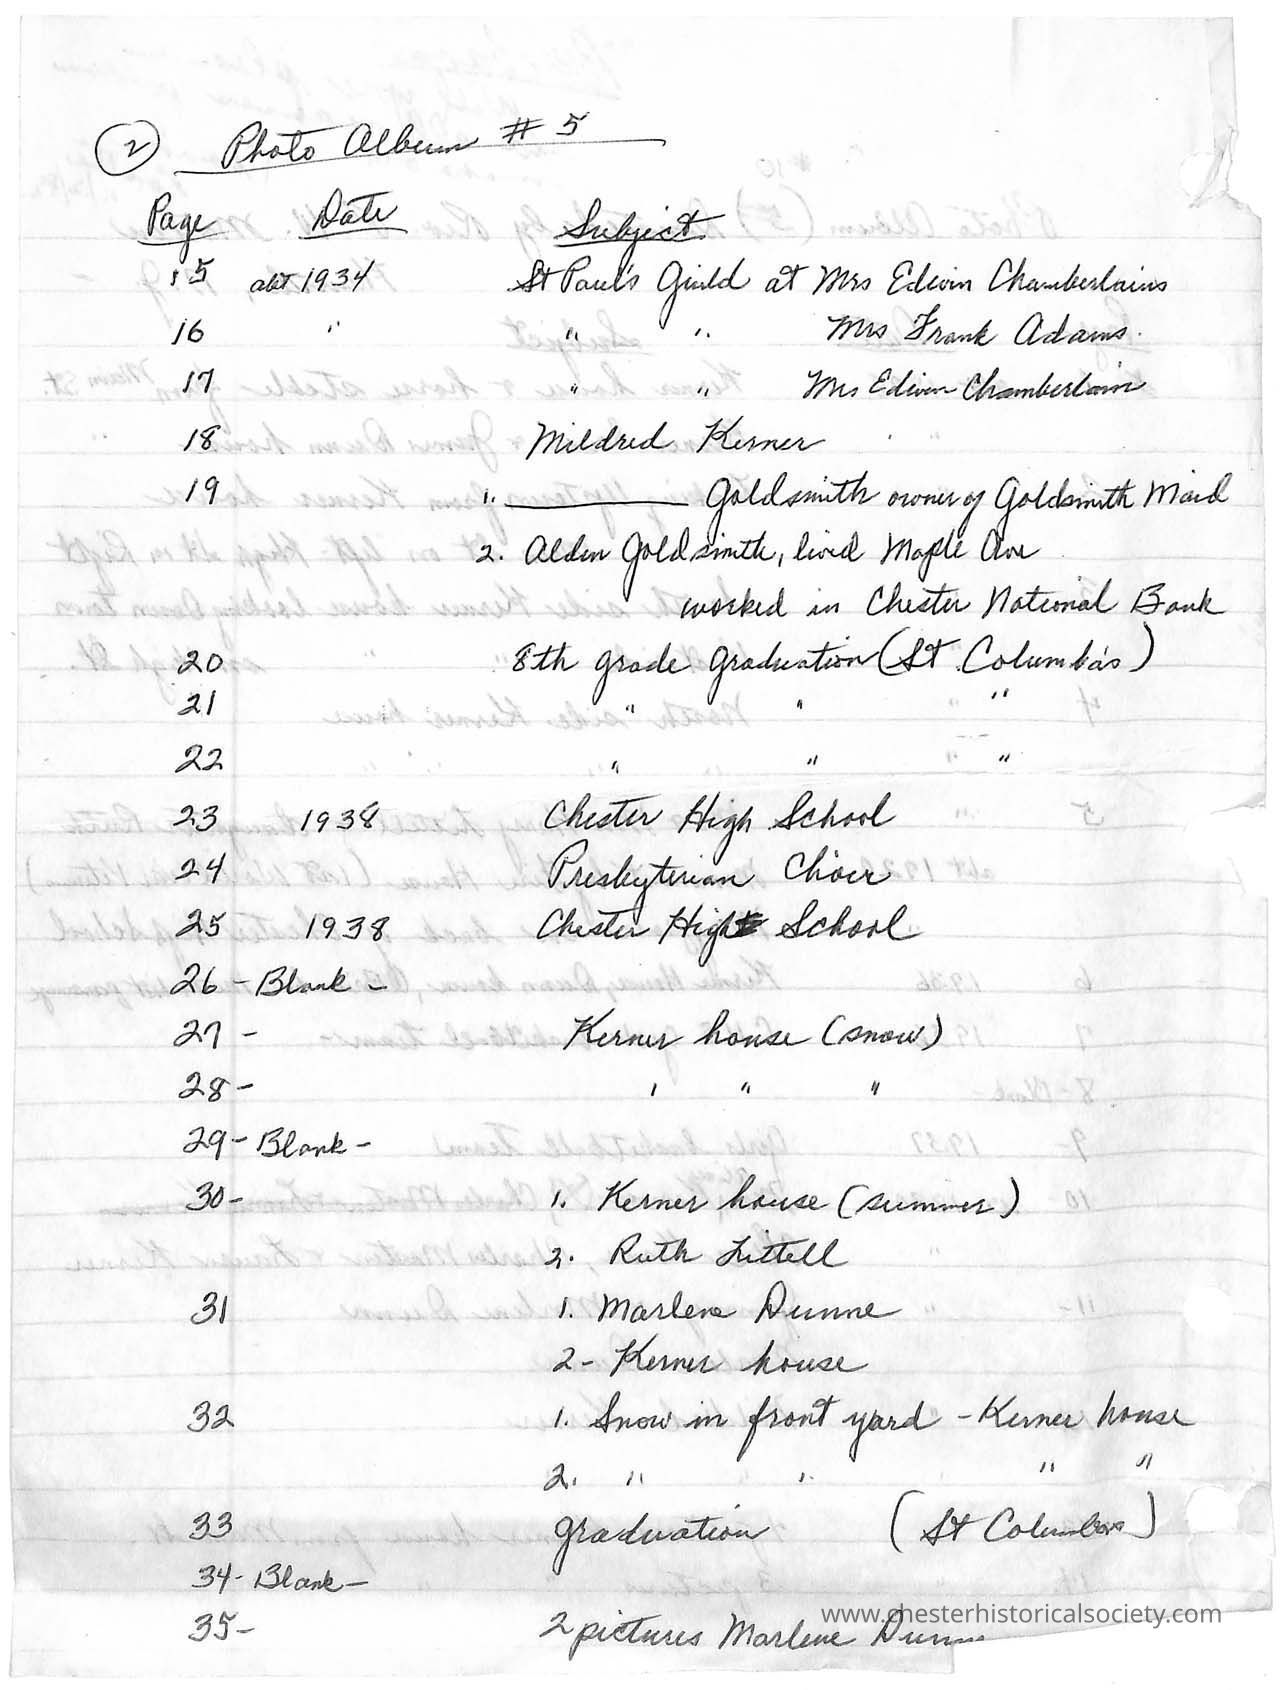 2 Photo Album # 5
Page Date Subject
15 abt 1934 St Paul's Guild at Mrs Edwin Chamberlains
16 " " " Mrs Frank Adams.
17 " " Mrs Edwin Chamberlain
18 Mildred Kerner
19 1. ________ Goldsmith owner of Goldsmith Maid
2. Alden Goldsmith, lived Maple Ave
worked in Chester National Bank
20 8th grade Graduation (St Columba's)
21 " " "
22 " " "
23 1938 Chester High School
24 Presbyterian Choir
25 1938 Chester High School
26 - Blank -
27 - Kerner house (snow)
28 - " " "
29 - Blank -
30 - 1. Kerner house (summer)
2. Ruth Littell
31 1. Marlene Dunne
2 - Kerner house
32 1. Snow in front yard - Kerner house
2. " " " "
33 Graduation (St Columbas)
34 - Blank -
35 - 2 pictures Marlene Dunne
www.chesterhistoricalsociety.com